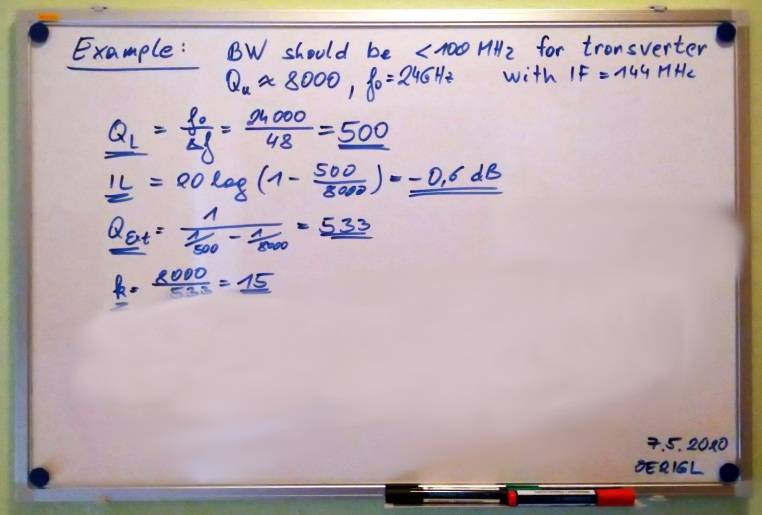 Example: BW should be < 100 MHz for transverter
Qu ≈ 8000, f₀ = 24GHz with IF = 144 MHz
Q_L = f₀/Δf = 24000/48 = 500
IL = 20 log (1 - 500/8000) = -0,6 dB
Q_Ext = 1/(1/500 - 1/8000) = 533
k = 8000/533 = 15
7.5.2020
OE2IGL